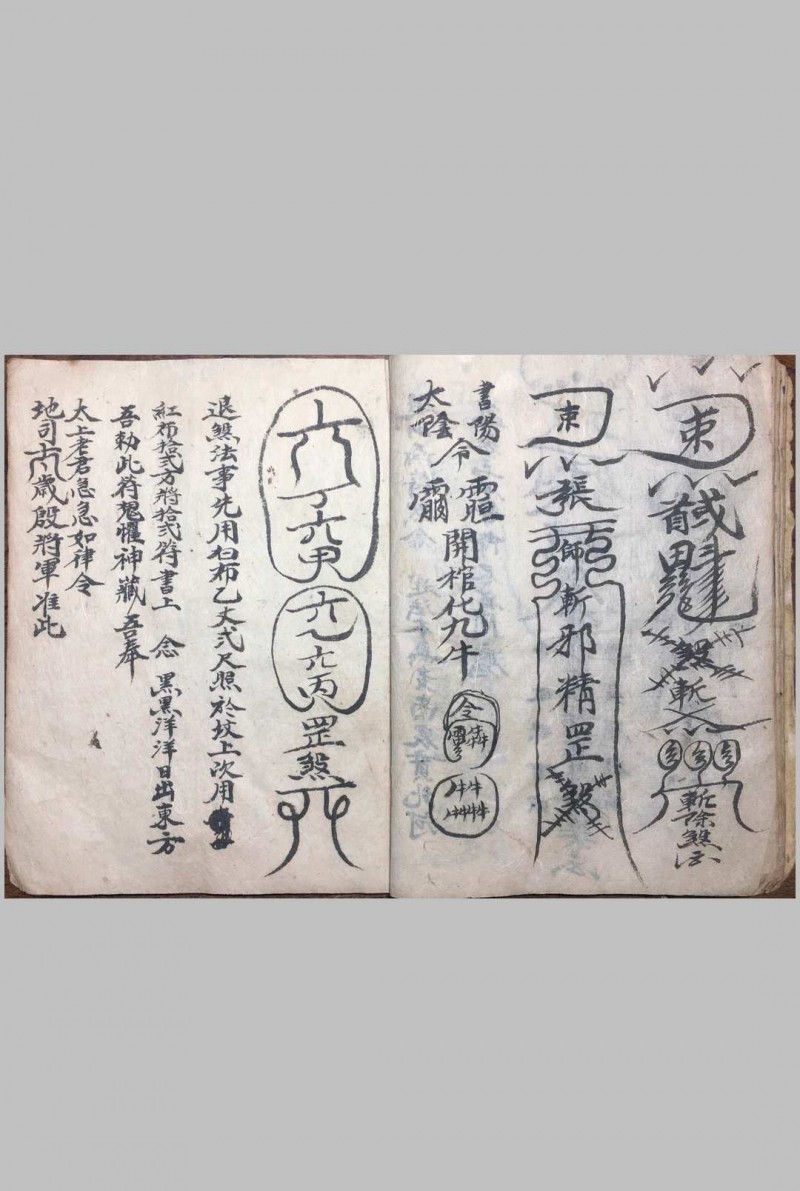 束
斬
斬除煞法
束
張
師斬邪精罡煞
書陽令
太陰
開棺化九牛
令
六丁六甲
六乙六丙罡煞
退煞法事先用白布乙丈弍尺照於坟上次用
紅布拾弍方將拾弍符書上 念 黑黑洋洋日出東方
吾勅此符鬼懼神藏吾奉
太上老君急急如律令
地司太歲殷將軍准此